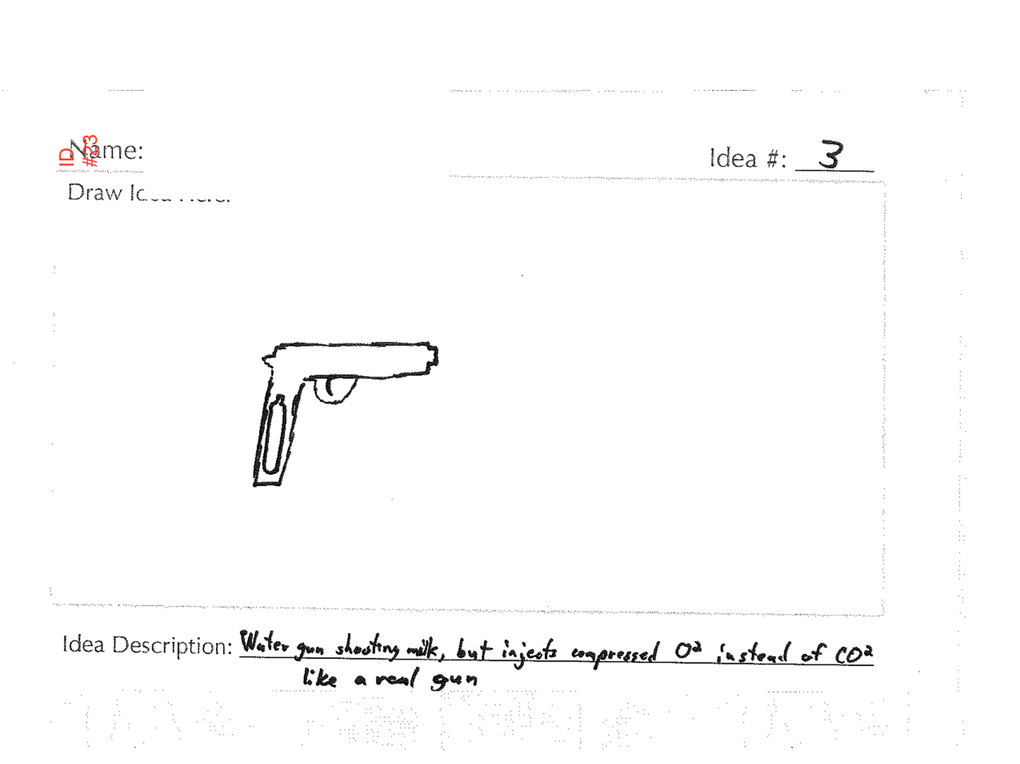 ID
#23
Name:
Idea #: 3
Draw
Idea Description: Water gun shooting milk, but injects compressed O² instead of CO²
like a real gun